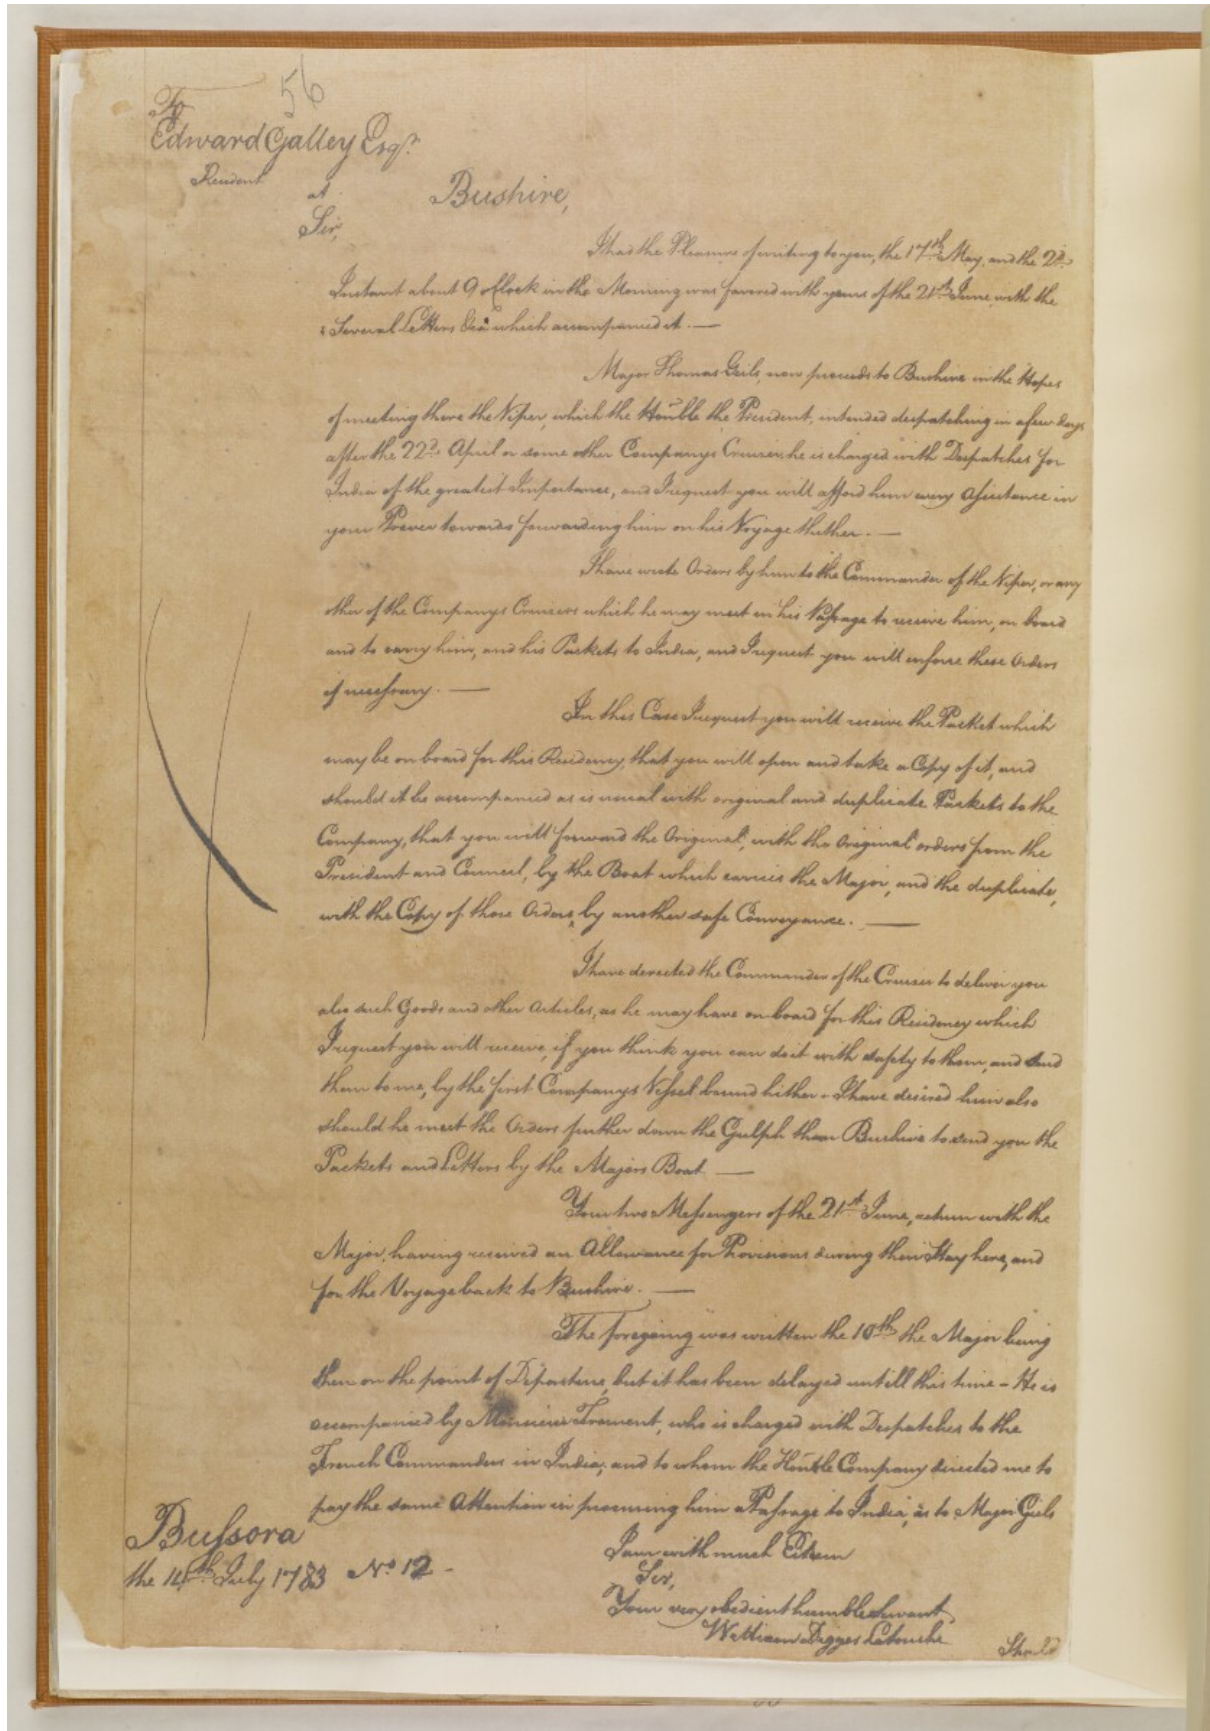 56
To
Edward Galley Esqr.
Resident
at
Bushire,
Sir,
I had the Pleasure of writing to you, the 17th May, and the 2d.
Instant about 9 oClock in the Morning was favored with yours of the 21st June with the
Several Letters &ca which accompanied it. —
Major Thomas Geils, now proceeds to Bushire in the Hopes
of meeting there the Viper, which the Honble the President, intended despatching in a few days
after the 22d. April or some other Companys Cruiser, he is charged with Despatches for
India of the greatest Importance, and I request you will afford him every Assistance in
your Power towards forwarding him on his Voyage thither. —
I have wrote Orders by him to the Commander of the Viper, or any
other of the Companys Cruisers which he may meet in his Passage to receive him, on board
and to carry him, and his Packets to India, and I request you will enforce these Orders
if necessary. —
In this Case I request you will receive the Packet which
may be on board for this Residency, that you will open and take a Copy of it, and
should it be accompanied as is usual with original and duplicate Packets to the
Company, that you will forward the Original, with the Original orders from the
President and Council, by the Boat which carries the Major, and the duplicate,
with the Copy of those Orders, by another safe Conveyance. —
I have derected the Commander of the Cruiser to deliver you
also such Goods and other Articles, as he may have on board for this Residency which
I request you will receive, if you think you can do it with safety to them, and send
them to me, by the first Companys Vessel bound hither - I have desired him also
should he meet the Orders further down the Gulph than Bushire to send you the
Packets and Letters by the Majors Boat —
Your two Messengers of the 21st June, return with the
Major, having received an Allowance for Provisions during their Stay here, and
for the Voyage back to Bushire. —
The foregoing was written the 10th the Major being
then on the point of Departure, but it has been delayed untill this time - He is
accompanied by Monsieur Froment, who is charged with Despatches to the
French Commanders in India, and to whom the Honble Company directed me to
pay the same Attention in procuring him a Passage to India, as to Major Giels
I am with much Esteem
Sir,
Your very obedient humble Servant,
William Digges Latouche
Bussora
the 14th July 1783 No 12 -
Should